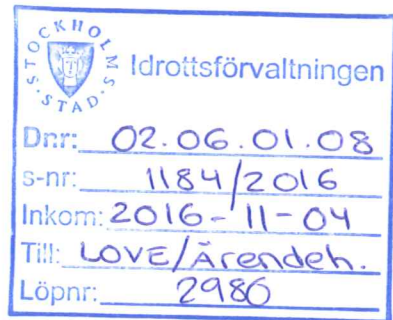 STOCKHOLMS STAD
Idrottsförvaltningen
Dnr: 02.06.01.08
s-nr: 1184/2016
Inkom: 2016-11-04
Till: LOVE/Ärendeh.
Löpnr: 2986